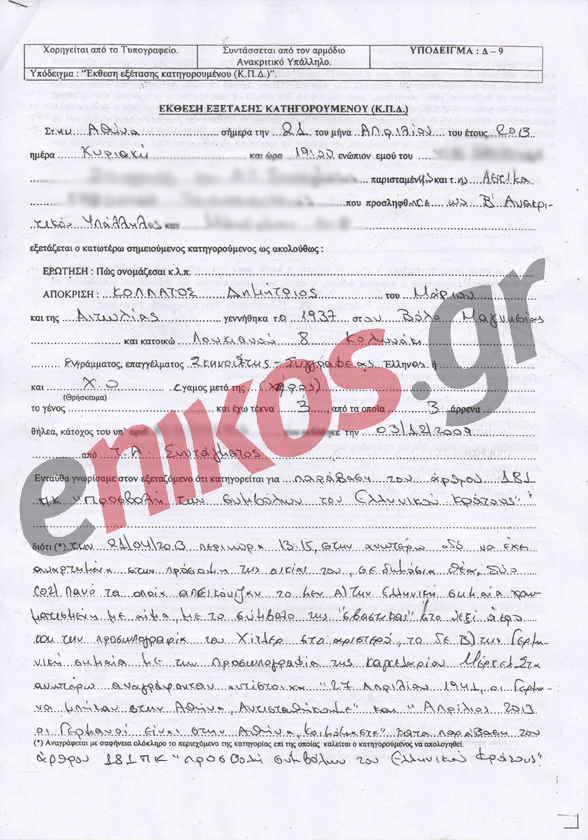 Χορηγείται από το Τυπογραφείο. Συντάσσεται από τον αρμόδιο Ανακριτικό Υπάλληλο. ΥΠΟΔΕΙΓΜΑ : Δ – 9
Υπόδειγμα : "Έκθεση εξέτασης κατηγορουμένου (Κ.Π.Δ.)".
ΕΚΘΕΣΗ ΕΞΕΤΑΣΗΣ ΚΑΤΗΓΟΡΟΥΜΕΝΟΥ (Κ.Π.Δ.)
Στην Αθήνα σήμερα την 21 του μήνα Απριλίου του έτους 2013
ημέρα Κυριακή και ώρα 19:00 ενώπιον εμού του
παρισταμένου και της
που προσληφθ ως Β' Ανακρι-
τικός Υπάλληλος και
εξετάζεται ο κατωτέρω σημειούμενος κατηγορούμενος ως ακολούθως :
ΕΡΩΤΗΣΗ : Πώς ονομάζεσαι κ.λ.π.
ΑΠΟΚΡΙΣΗ : ΚΟΛΛΑΤΟΣ Δημήτριος του Μάριου
και της Αιτωλίας γεννήθηκα το 1937 στον Βόλο Μαγνησίας
και κατοικώ Λουκιανού 8 Κολωνάκι
Εγγράμματος, επαγγέλματος Σκηνοθέτης - Συγγραφέας Έλληνας ή
και Χ.Ο έγγαμος μετά της (χήρος)
(Θρήσκευμα)
το γένος και έχω τέκνα 3 από τα οποία 3 άρρενα
θήλεα, κάτοχος του υπ' αριθ. που εκδόθηκε την 03/12/2009
από Τ.Α. Συντάγματος
Ενταύθα γνωρίσαμε στον εξεταζόμενο ότι κατηγορείται για παράβαση του άρθρου 181
ΠΚ "Προσβολή των συμβόλων του Ελληνικού Κράτους"
διότι (*) την 21/04/2013 περί ώρα 13:15, στην ανωτέρω οδό να έχει
αναρτημένα στην πρόσοψη της οικίας του, σε δημόσια θέα, δύο
(02) πανό τα οποία απεικόνιζαν το μεν Α) την Ελληνική σημαία χρω-
ματισμένη με αίμα, με το σύμβολο της "σβάστικας" στο δεξί άκρο
και την προσωπογραφία του Χίτλερ στο αριστερό, το δε Β) της Γερμα-
νική σημαία με την προσωπογραφία της καγκελαρίου Μέρκελ. Στα
ανωτέρω αναγράφονταν αντίστοιχα "27 Απριλίου 1941, οι Γερμα-
νοί μπήκαν στην Αθήνα, Αντισταθήκαμε" και "Απρίλιος 2013
οι Γερμανοί είναι στην Αθήνα, Κοιμόμαστε" κατά παράβαση του
(*) Αναγράφεται με σαφήνεια ολόκληρο το περιεχόμενο της κατηγορίας επί της οποίας καλείται ο κατηγορούμενος να απολογηθεί.
άρθρου 181 ΠΚ "προσβολή συμβόλων του Ελληνικού Κράτους"
enikos.gr